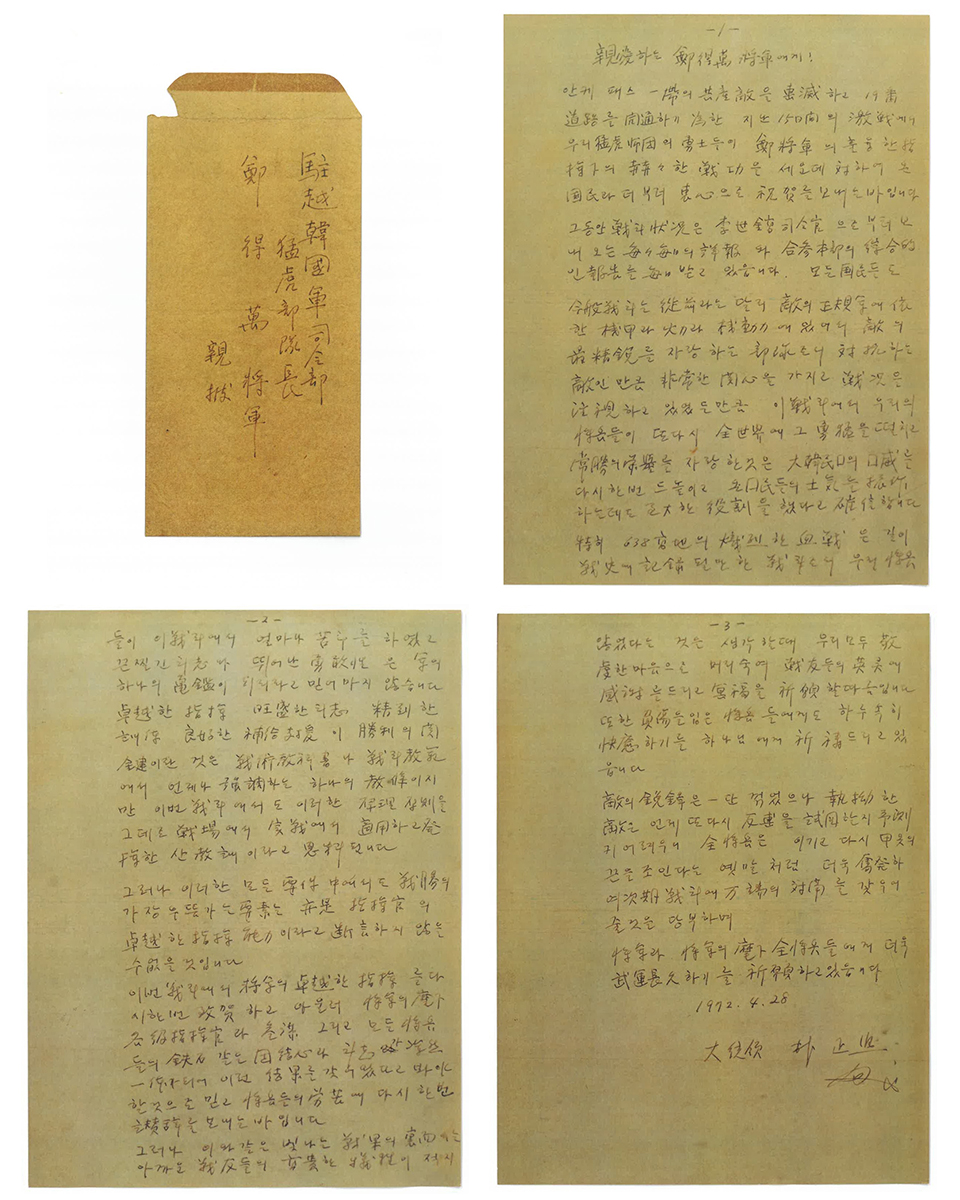 駐越韓國軍司令部
猛虎部隊長
鄭得萬將軍
親披
-1-
親愛하는 鄭得萬 將軍에게!
안케 패스 一帶의 共産敵을 Loss 하고 19番
道路를 開通하기 爲한 지난 15日間의 激戰에서
우리 猛虎师团의 勇士들이 鄭將軍의 훌륭한 指
揮下에 赫々한 戰功을 세운데 対하여 온
国民과 더부러 衷心으로 祝賀를 보내는바입니다
그동안 戰斗狀況은 李世鎬司令官으로부터 보
내오는 每日每日의 詳報와 合参本部의 綜合的
인 報告를 每日 받고 있읍니다. 모든 国民들도
今般 戰斗는 從前과는 달리 敵의 正規軍에 依
한 機甲과 火力과 機動力에 있어서 敵의
最精銳를 자랑하는 部隊로서 対抗하는
敵인 만큼 非常한 関心을 가지고 戰況을
注視하고 있었든만큼 이 戰斗에서 우리의
將兵들이 또다시 全世界에 그 勇猛을 떨치고
常勝의 榮譽를 자랑한 것은 大韓民口의 口威를
다시한번 드높이고 온 口民들의 士氣를 振作
하는데도 至大한 役割을 했다고 確信합니다
特히 638高地의 熾烈한 血戰은 길이
戰史에 記錄될만한 戰斗로서 우리 將兵
-2-
들이 이 戰斗에서 얼마나 苦労를 하였고
끈찔긴 斗志와 뛰어난 勇敢性은 軍의
하나의 龜鑑이 되리라고 믿어마지 않습니다
卓越한 指揮 旺盛한 斗志 精到한
計劃 良好한 補給支援이 勝利의 関
鍵이란 것은 戰術敎科書나 戰斗敎範
에서 언제나 强調하는 하나의 敎條이지
만 이번 戰斗에서도 이러한 原理原則을
그대로 戰場에서 実戰에서 適用하고 發
揮한 산 敎訓이라고 思料됩니다
그러나 이러한 모든 要件 中에서도 戰勝의
가장 으뜸가는 要素는 亦是 指揮官의
卓越한 指揮能力이라고 断言하지 않을
수 없을 것입니다
이번 戰斗에서 將軍의 卓越한 指揮를 다
시한번 致賀하고 아울러 將軍의 麾下
各級指揮官과 参謀 그리고 모든 將兵
들의 鉄石 같은 団結心과 斗志가
一体가 되어 이런 結果를 갖우었다고 봐야
한 것으로 믿고 將兵들의 労苦에 다시 한번
讚辞를 보내는바입니다
그러나 이와같은 빛나는 戰果의 裏面에는
아까운 戰友들의 高貴한 犧牲이 적지
-3-
않았다는 것은 생각할때 우리모두 敬
虔한 마음으로 머리숙여 戰友들의 英灵에
感謝를 드리고 冥福을 祈願할따름입니다
또한 負傷을 입은 將兵들에게도 하루속히
快癒하기를 하나님에게 祈禱드리고 있
읍니다
敵의 銳鋒은 一旦 꺾었으나 執拗한
敵은 언제 또다시 反擊을 試図할지 予測
키 어려우니 全將兵은 이기고 다시 甲옷의
끈을 조인다는 옛말처럼 더욱 奮發하
여 次期 戰斗에 万全의 対備를 갖우어
줄것을 당부하며
將軍과 將軍의 麾下 全將兵들에게 더욱
武運長久하기를 祈願하고 있읍니다
1972. 4. 28
大統領 朴正熙